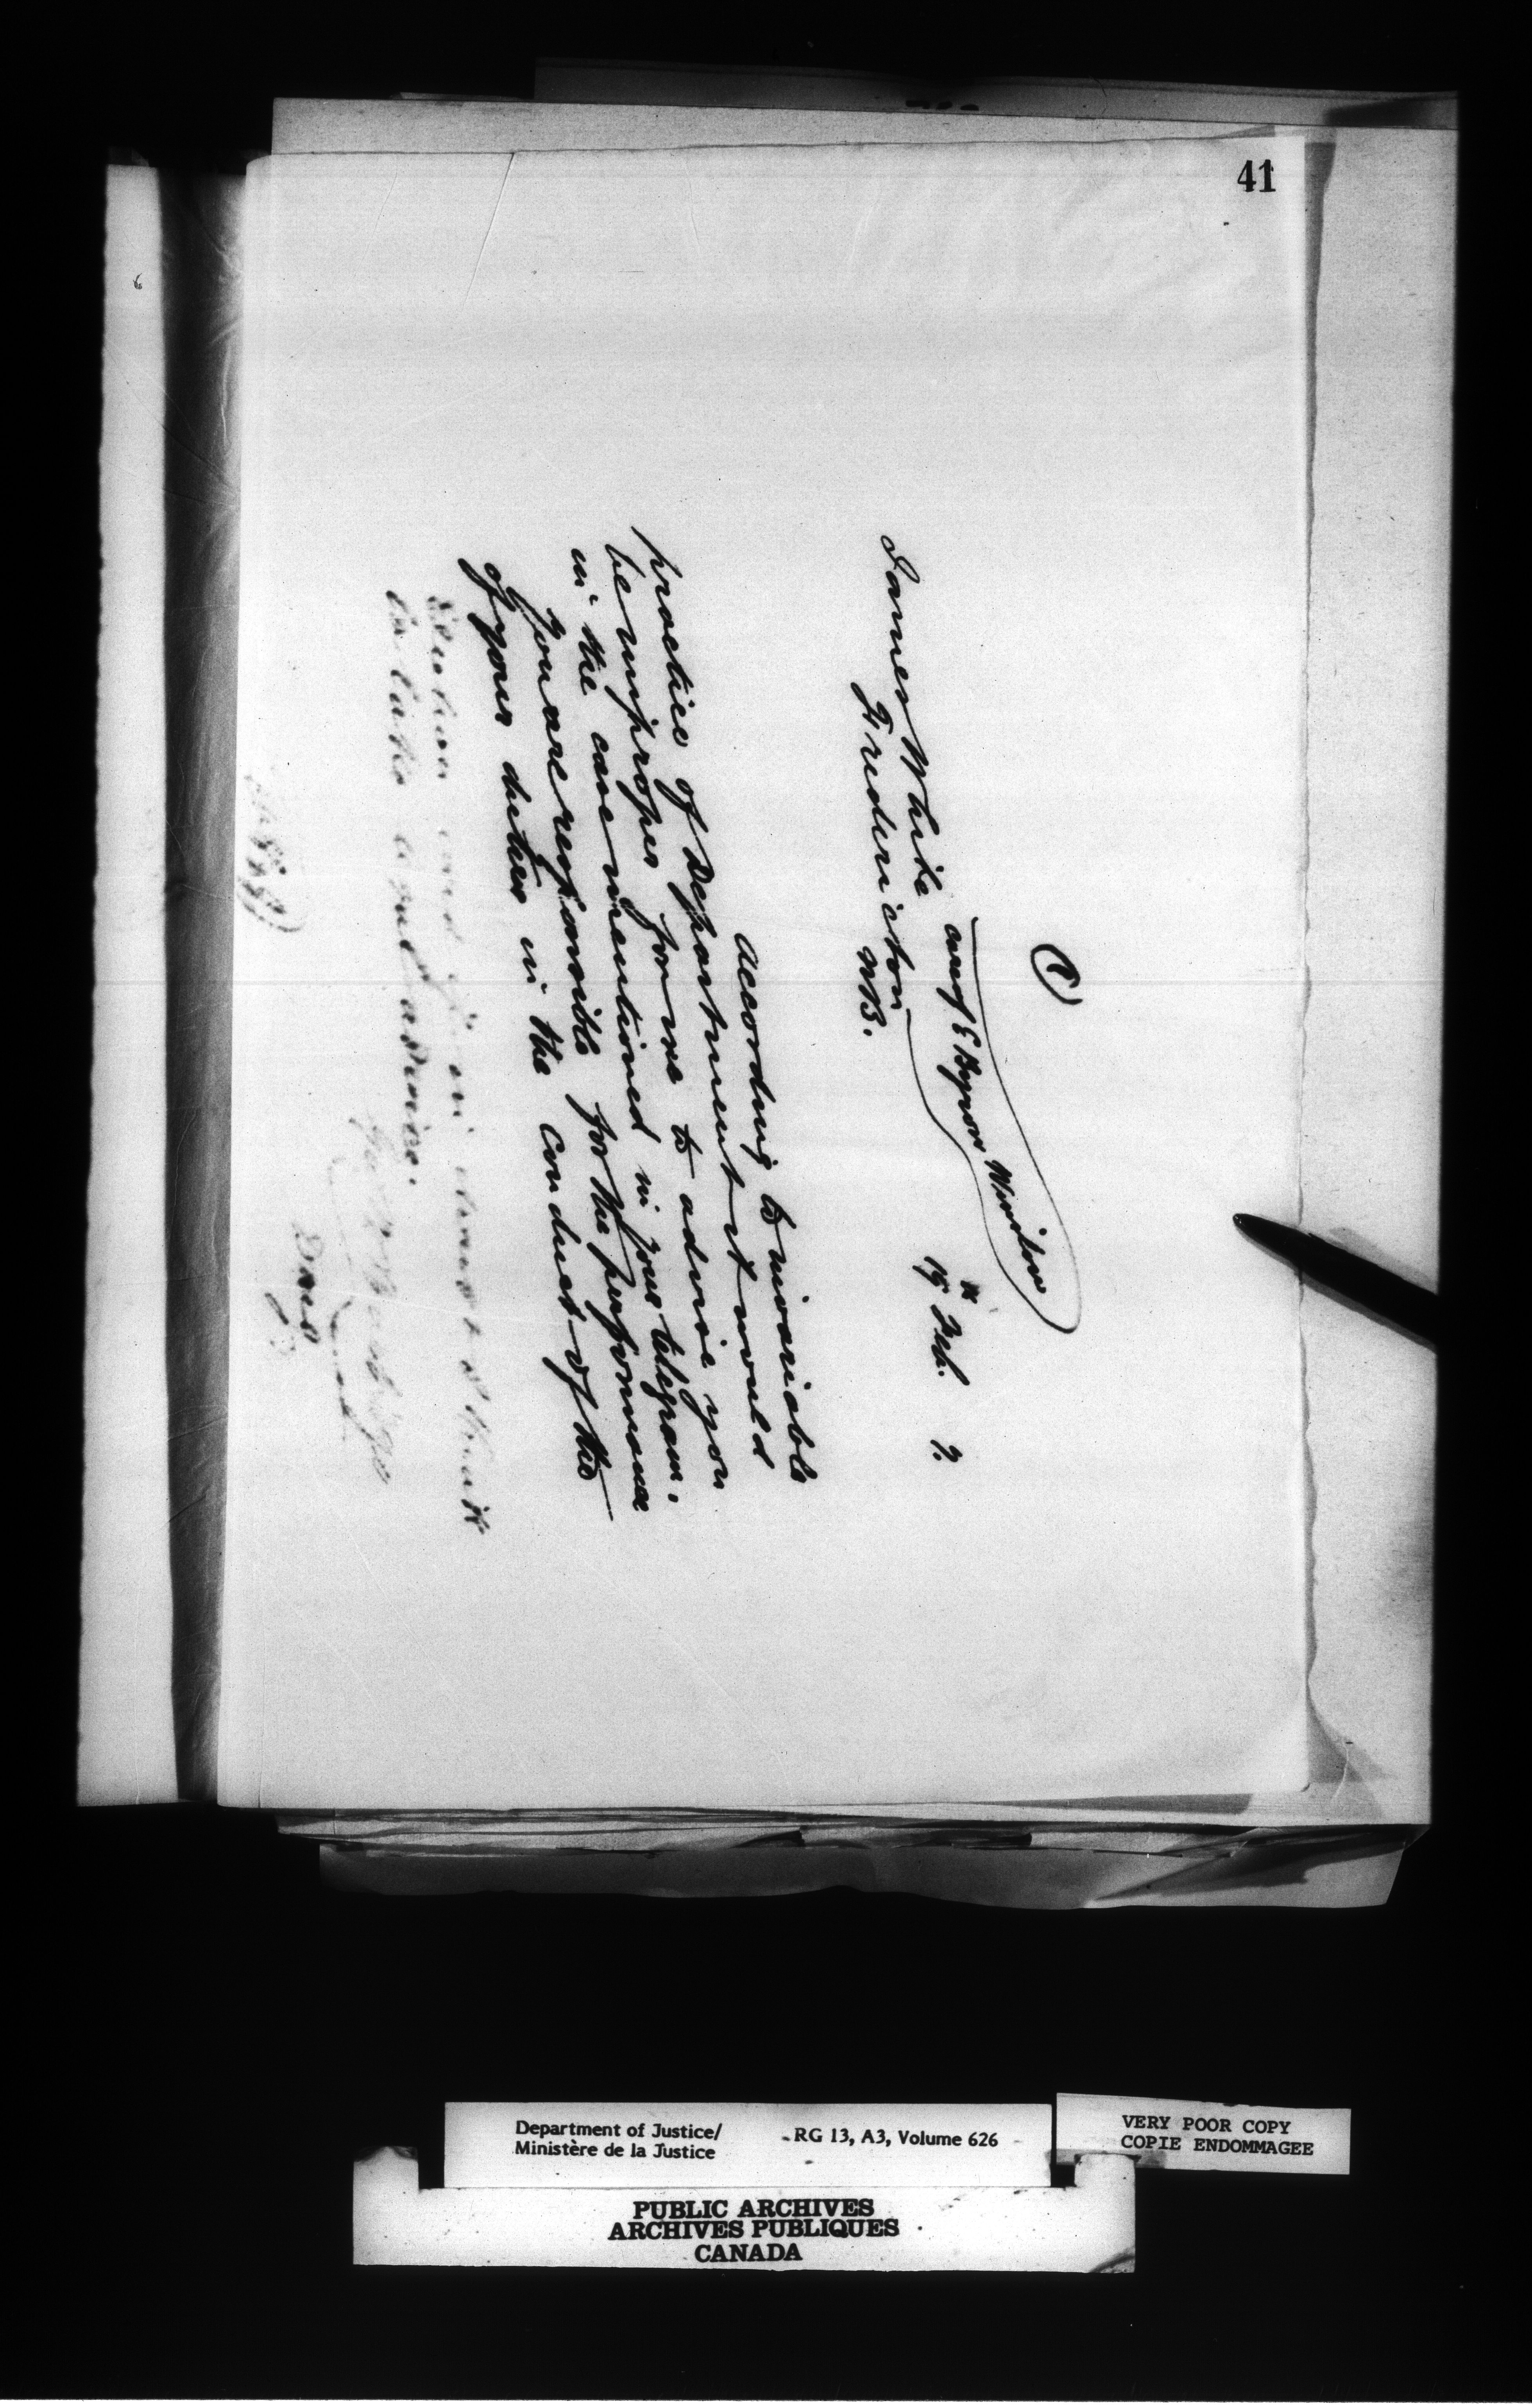 41
19th Feb. 7.
James White care of E Byron Winslow
Fredericton
N.B.
According to invariable
practice of Department it would
be improper for me to advise you
in the case mentioned in your telegram.
You are responsible for the performance
of your duties in the conduct of the
Election and in
to take advice.
Department of Justice/
Ministère de la Justice
RG 13, A3, Volume 626
VERY POOR COPY
COPIE ENDOMMAGEE
PUBLIC ARCHIVES
ARCHIVES PUBLIQUES
CANADA